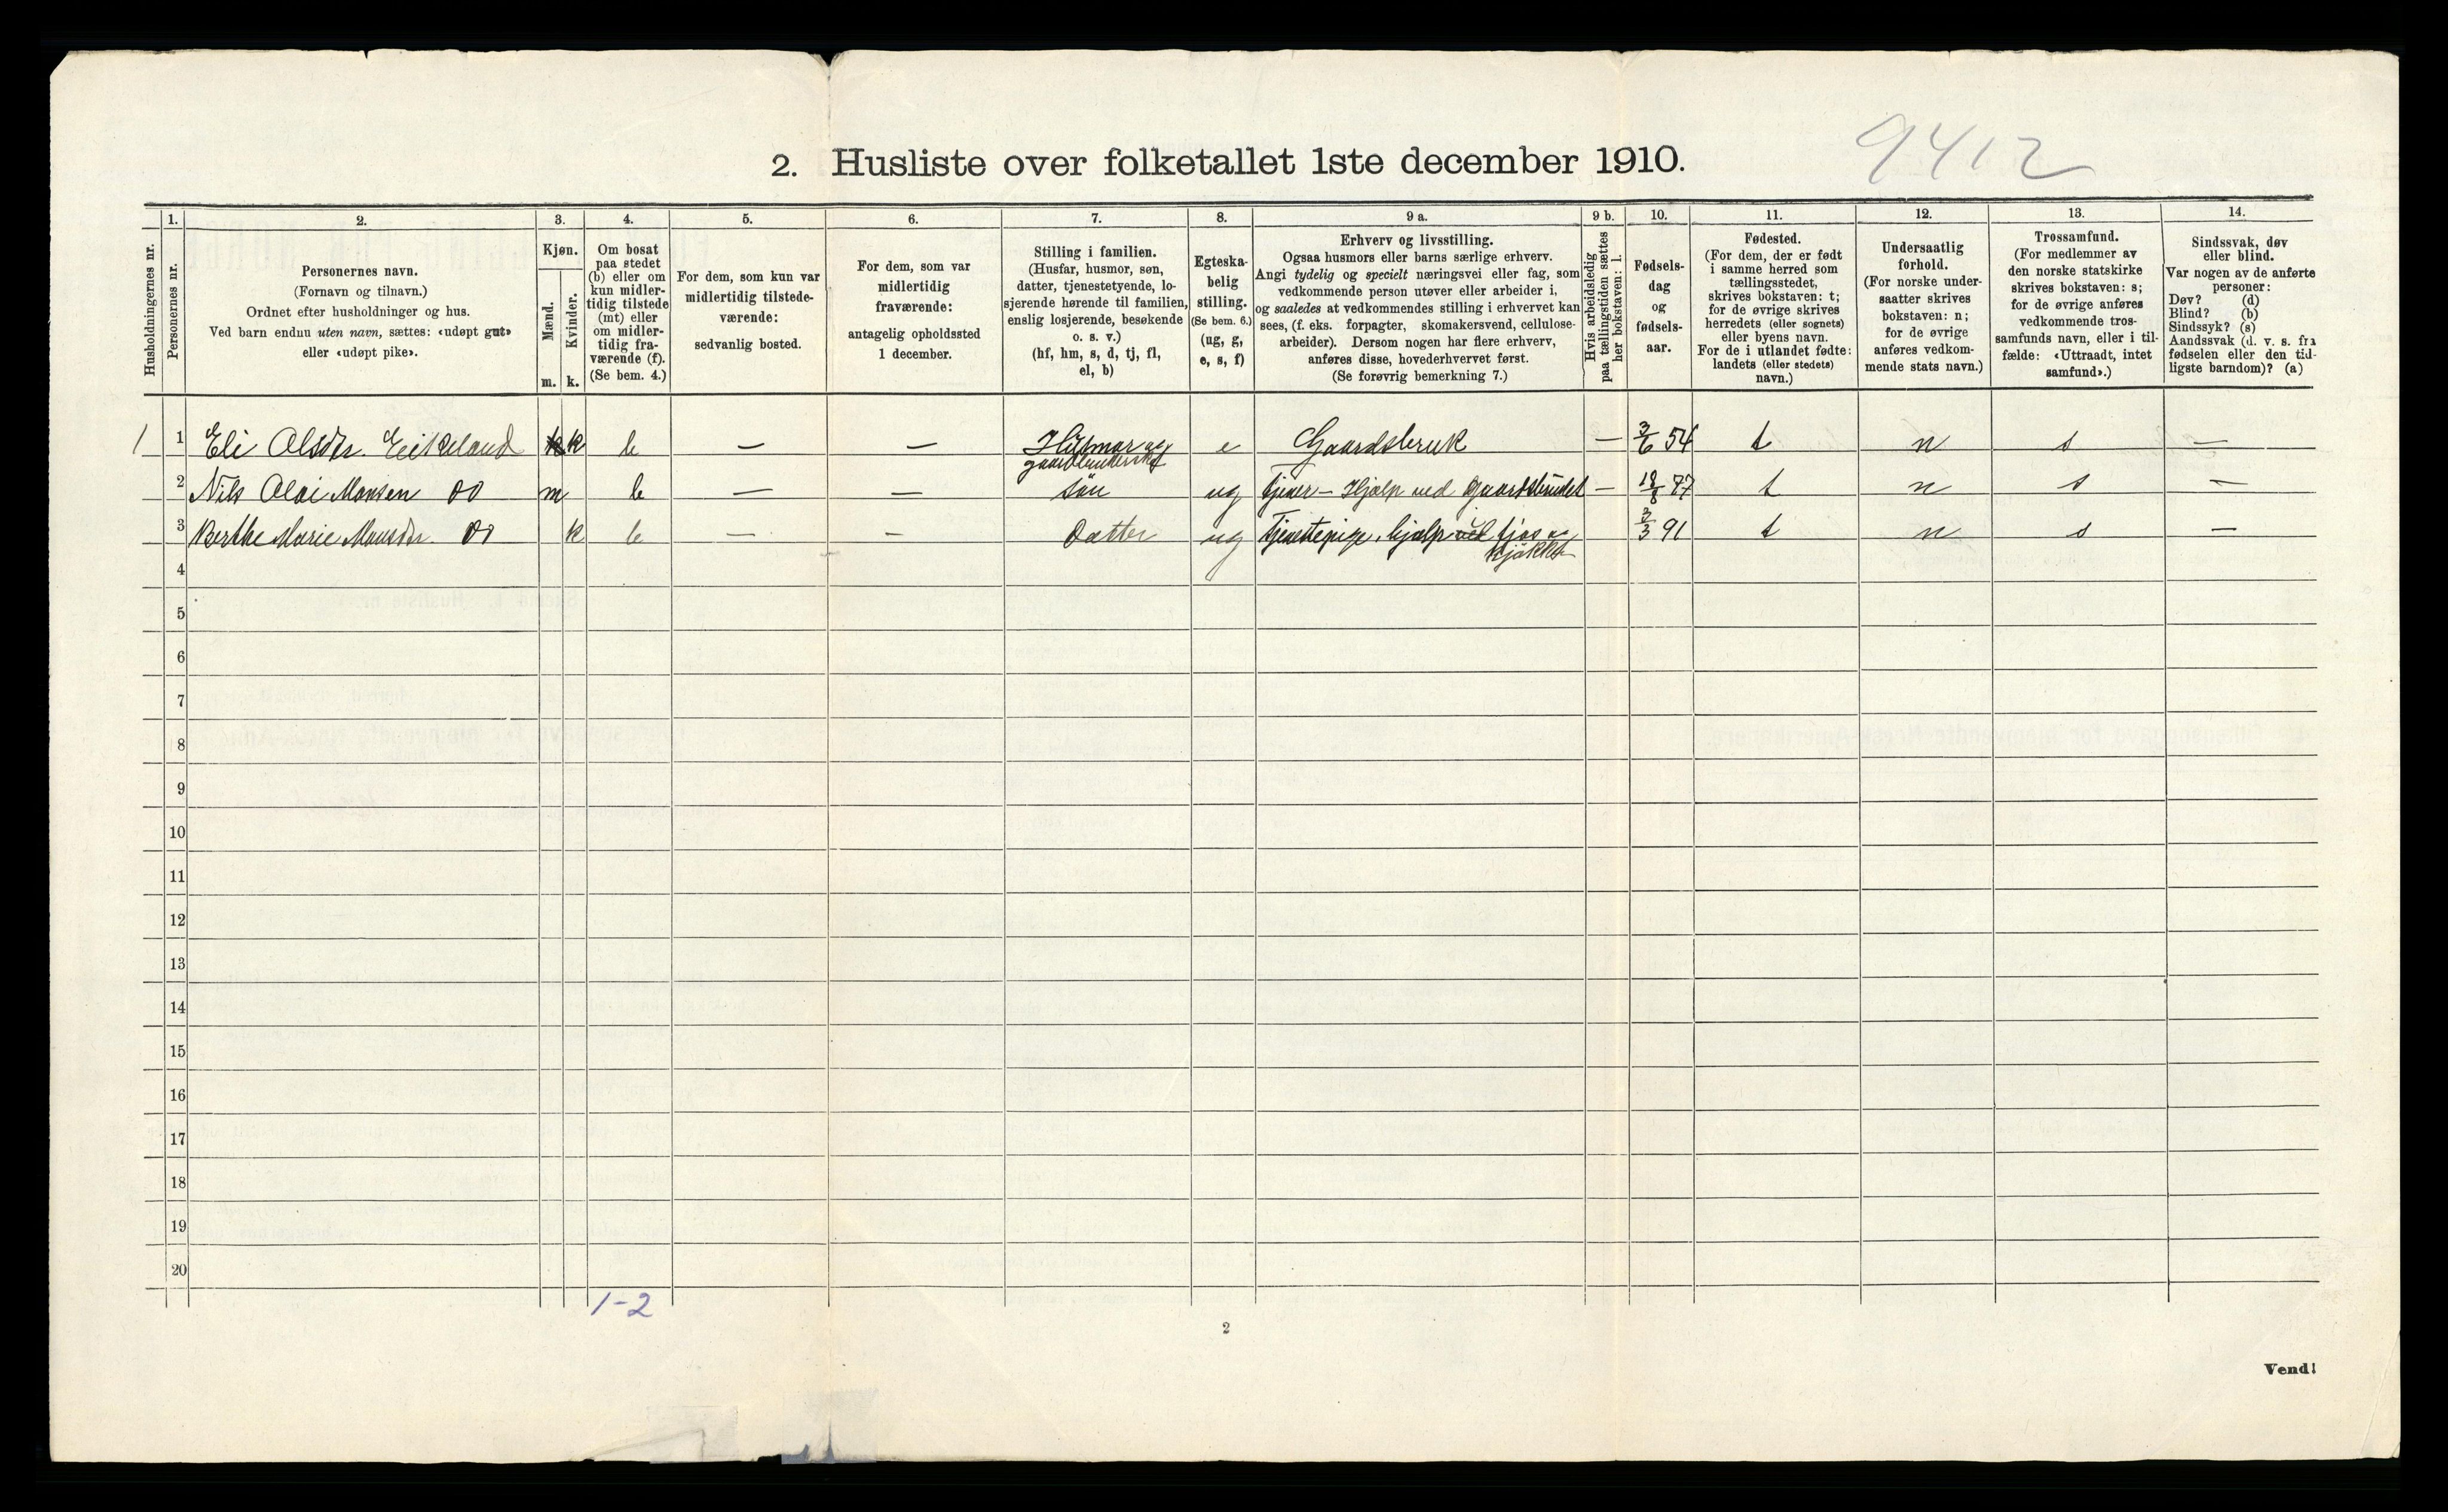 9412
2. Husliste over folketallet 1ste december 1910.
Husholdningernes nr.
1.
Personernes nr.
2.
Personernes navn.
(Fornavn og tilnavn.)
Ordnet efter husholdninger og hus.
Ved barn endnu uten navn, sættes: «udøpt gut»
eller «udøpt pike».
3.
Kjøn.
Mænd.
Kvinder.
m. k.
4.
Om bosat
paa stedet
(b) eller om
kun midler-
tidig tilstede
(mt) eller
om midler-
tidig fra-
værende (f).
(Se bem. 4.)
5.
For dem, som kun var
midlertidig tilstede-
værende:
sedvanlig bosted.
6.
For dem, som var
midlertidig
fraværende:
antagelig opholdssted
1 december.
7.
Stilling i familien.
(Husfar, husmor, søn,
datter, tjenestetyende, lo-
sjerende hørende til familien,
enslig losjerende, besøkende
o. s. v.)
(hf, hm, s, d, tj, fl,
el, b)
8.
Egteska-
belig
stilling.
(Se bem. 6.)
(ug, g,
e, s, f)
9 a.
Erhverv og livsstilling.
Ogsaa husmors eller barns særlige erhverv.
Angi tydelig og specielt næringsvei eller fag, som
vedkommende person utøver eller arbeider i,
og saaledes at vedkommendes stilling i erhvervet kan
sees, (f. eks. forpagter, skomakersvend, cellulose-
arbeider). Dersom nogen har flere erhverv,
anføres disse, hovederhvervet først.
(Se forøvrig bemerkning 7.)
9 b.
Hvis arbeidsledig
paa tællingstiden sættes
her bokstaven: l.
10.
Fødsels-
dag
og
fødsels-
aar.
11.
Fødested.
(For dem, der er født
i samme herred som
tællingsstedet,
skrives bokstaven: t;
for de øvrige skrives
herredets (eller sognets)
eller byens navn.
For de i utlandet fødte:
landets (eller stedets)
navn.)
12.
Undersaatlig
forhold.
(For norske under-
saatter skrives
bokstaven: n;
for de øvrige
anføres vedkom-
mende stats navn.)
13.
Trossamfund.
(For medlemmer av
den norske statskirke
skrives bokstaven: s;
for de øvrige anføres
vedkommende tros-
samfunds navn, eller i til-
fælde: «Uttraadt, intet
samfund».)
14.
Sindssvak, døv
eller blind.
Var nogen av de anførte
personer:
Døv? (d)
Blind? (b)
Sindssyk? (s)
Aandssvak (d. v. s. fra
fødselen eller den tid-
ligste barndom)? (a)
1 1 Eli Olsdtr. Eikeland k b — — Husmor og e Gaardsbruk — 3/6 54 t n s —
2 Nils Olai Monsen do m b — — søn ug Tjener — Hjælp ved Gaardsbruket — 18/8 87 t n s —
3 Berthe Marie Monsdtr. do k b — — Datter ug Tjenestepige, hjælp ved fjøs og 3/3 91 t n s —
kjøkken
4
5
6
7
8
9
10
11
12
13
14
15
16
17
18
19
20
1-2
2
Vend!